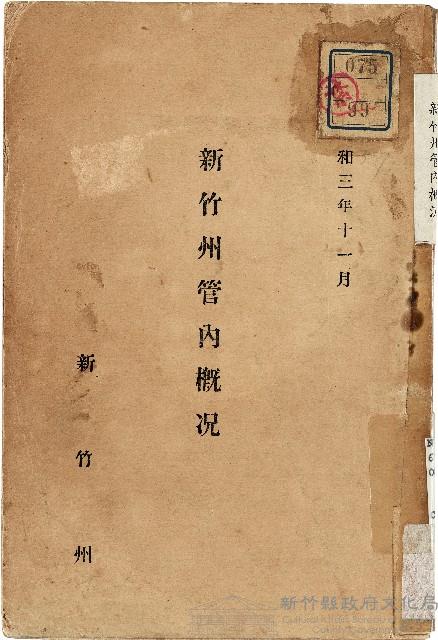 075
99
和三年十一月
新竹州管內概况
新竹州
新竹州管內概況
新竹縣政府文化局
Cultural Affairs Bureau of Hsinchu
County Government